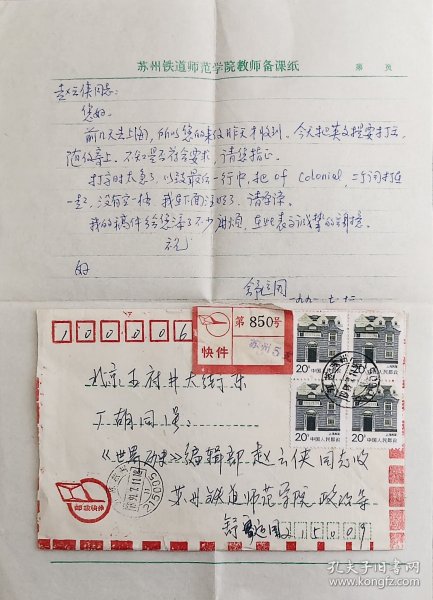 苏州铁道师范学院教师备课纸
第 页
赵云侠同志:
您好。
前几天去上海,所以您的来信昨天才收到。今天把英文提要打好,
随信寄上。不知是否符合要求,请您指正。
打字时太急了,以致最后一行中,把 of Colonial,二词打在
一起,没有空一格,我在下面注明了,请原谅。
我的稿件给您添了不少麻烦,在此表示诚挚的谢意。
祝
好
舒运国
一九九一.七.十二.
100006
第850号
快件
苏州5支
20分
中国人民邮政
20分
中国人民邮政
20分
中国人民邮政
20分
中国人民邮政
北京王府井大街东
厂胡同1号
《世界历史》编辑部 赵云侠同志收
苏州铁道师范学院政治系
舒运国 215009
邮政快件
孔夫子旧书网
www.kongfz.com